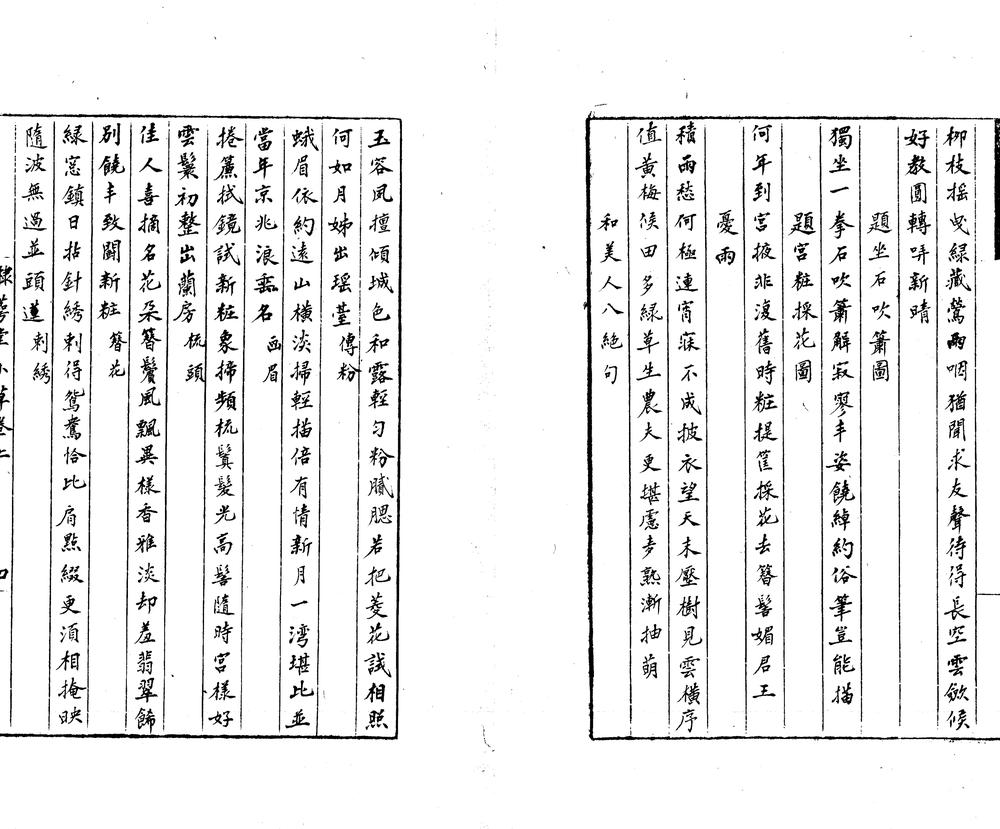 柳枝揺曵綠藏鶯兩咽猶聞求友聲待得長空雲歛候
好教圓轉哢新晴
題坐石吹簫圖
獨坐一拳石吹簫解寂寥丰姿饒綽約俗筆豈能描
題宮粧採花圖
何年到宮掖非復舊時粧提筐採花去簪髻媚君王
憂雨
積雨愁何極連宵寐不成披衣望天末壓樹見雲橫序
值黄梅候田多綠草生農夫更堪慮麥熟漸抽萌
和美人八絕句
玉容夙擅傾城色和露輕勻粉膩腮若把菱花試相照
何如月姊出瑶臺 傅粉
蛾眉依約遠山橫淡掃輕描倍有情新月一湾堪比並
當年京兆浪垂名 画眉
捲簾拭鏡試新粧象掃頻梳鬒髮光高髻隨時宮樣好
雲鬟初整出蘭房 梳頭
佳人喜摘名花朵簪鬢風飄異樣香雅淡却羞翡翠餙
別饒丰致鬭新粧 簪花
綠窓鎮日拈針綉刺得鴛鴦恰比肩點綴更須相掩映
隨波無過並頭蓮 刺綉
棣萼堂小草卷二